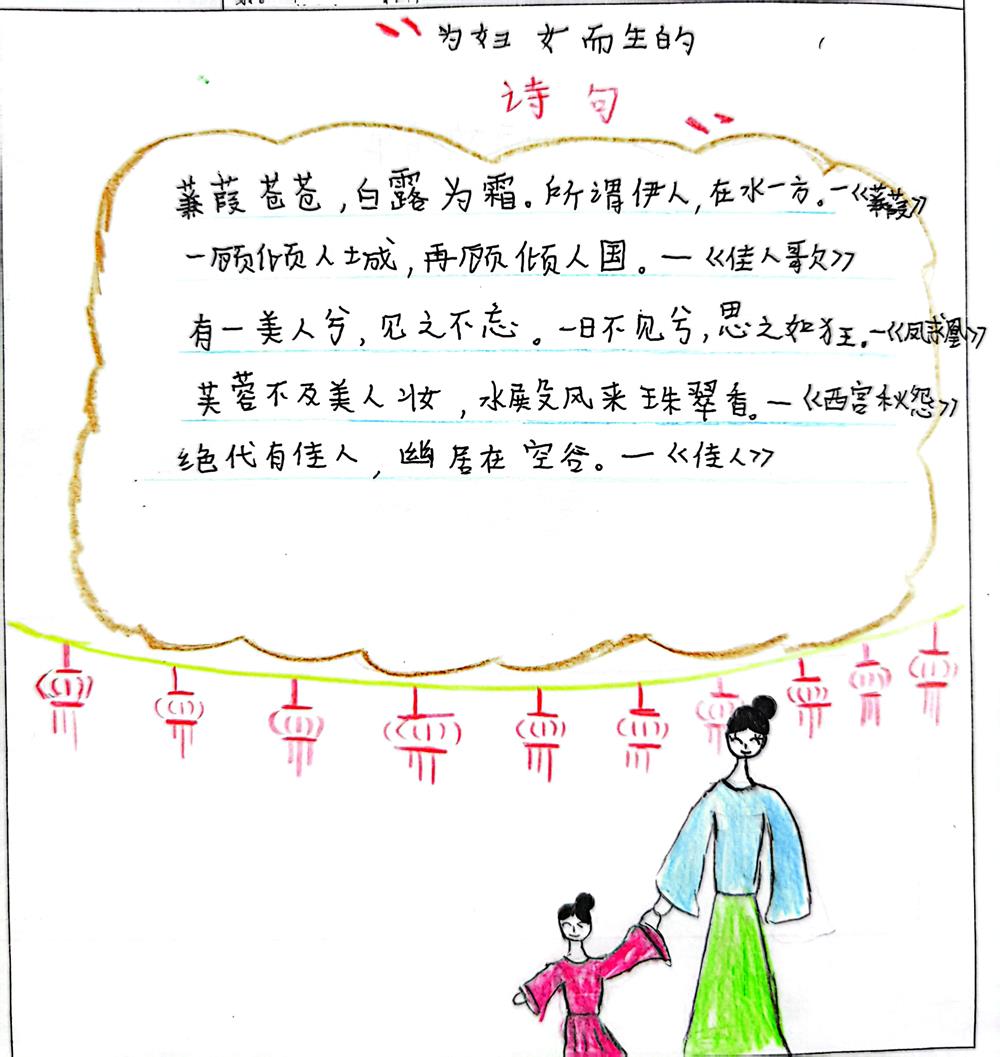 为妇女而生的
诗句
蒹葭苍苍,白露为霜。所谓伊人,在水一方。—《蒹葭》
一顾倾人城,再顾倾人国。—《佳人歌》
有一美人兮,见之不忘。一日不见兮,思之如狂。—《凤求凰》
芙蓉不及美人妆,水殿风来珠翠香。—《西宫秋怨》
绝代有佳人,幽居在空谷。—《佳人》